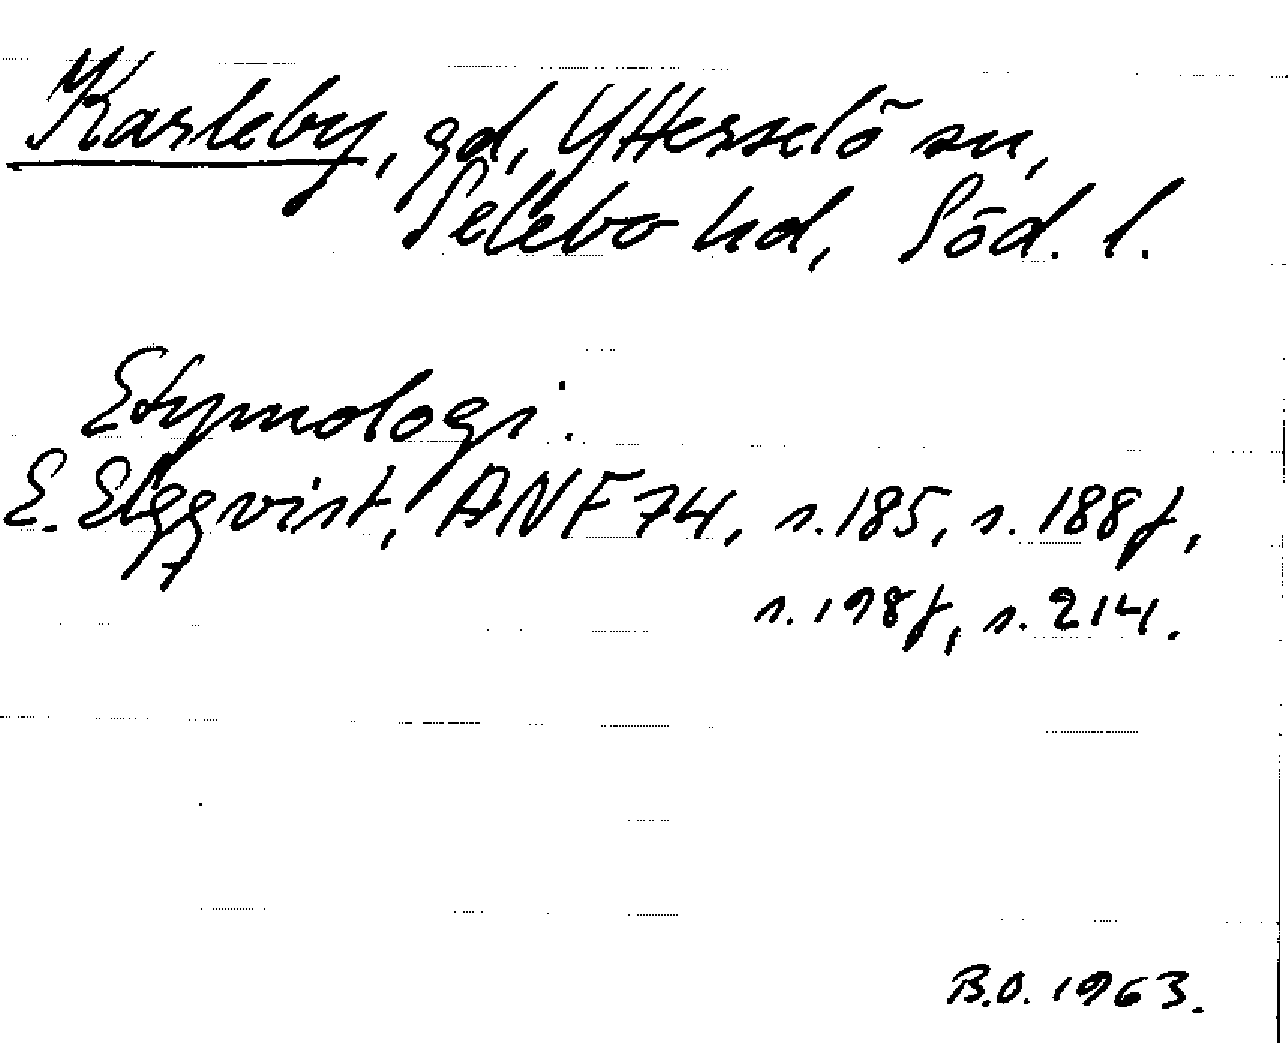 Karleby, gd, Ytterselö sn,
Selebo hd, Söd. l.
Etymologi:
E. Elgqvist, ANF 74, s. 185, s. 188f,
s. 198f, s. 214.
B.O. 1963.